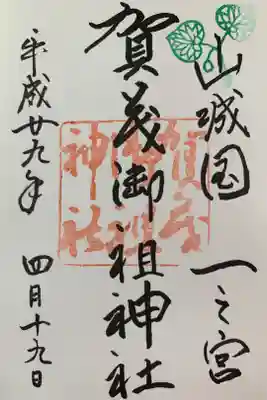 山城国 一之宮
賀茂御祖神社
平成廿九年 四月十九日
賀茂
御祖
神社